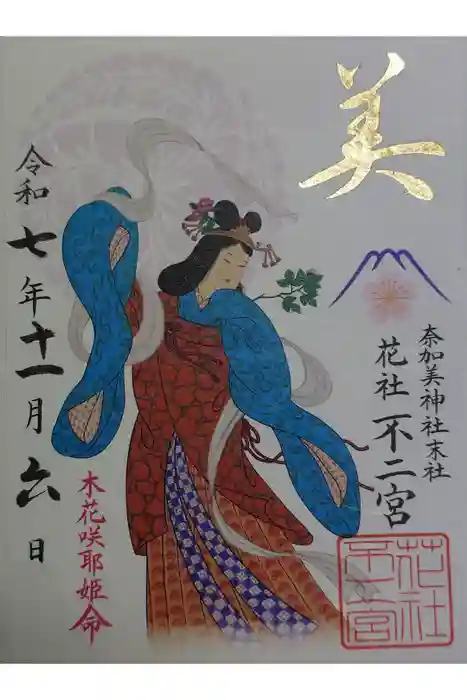 美
奈加美神社末社
花社 不二宮
花社
不二宮
令和七年十一月六日
木花咲耶姫命